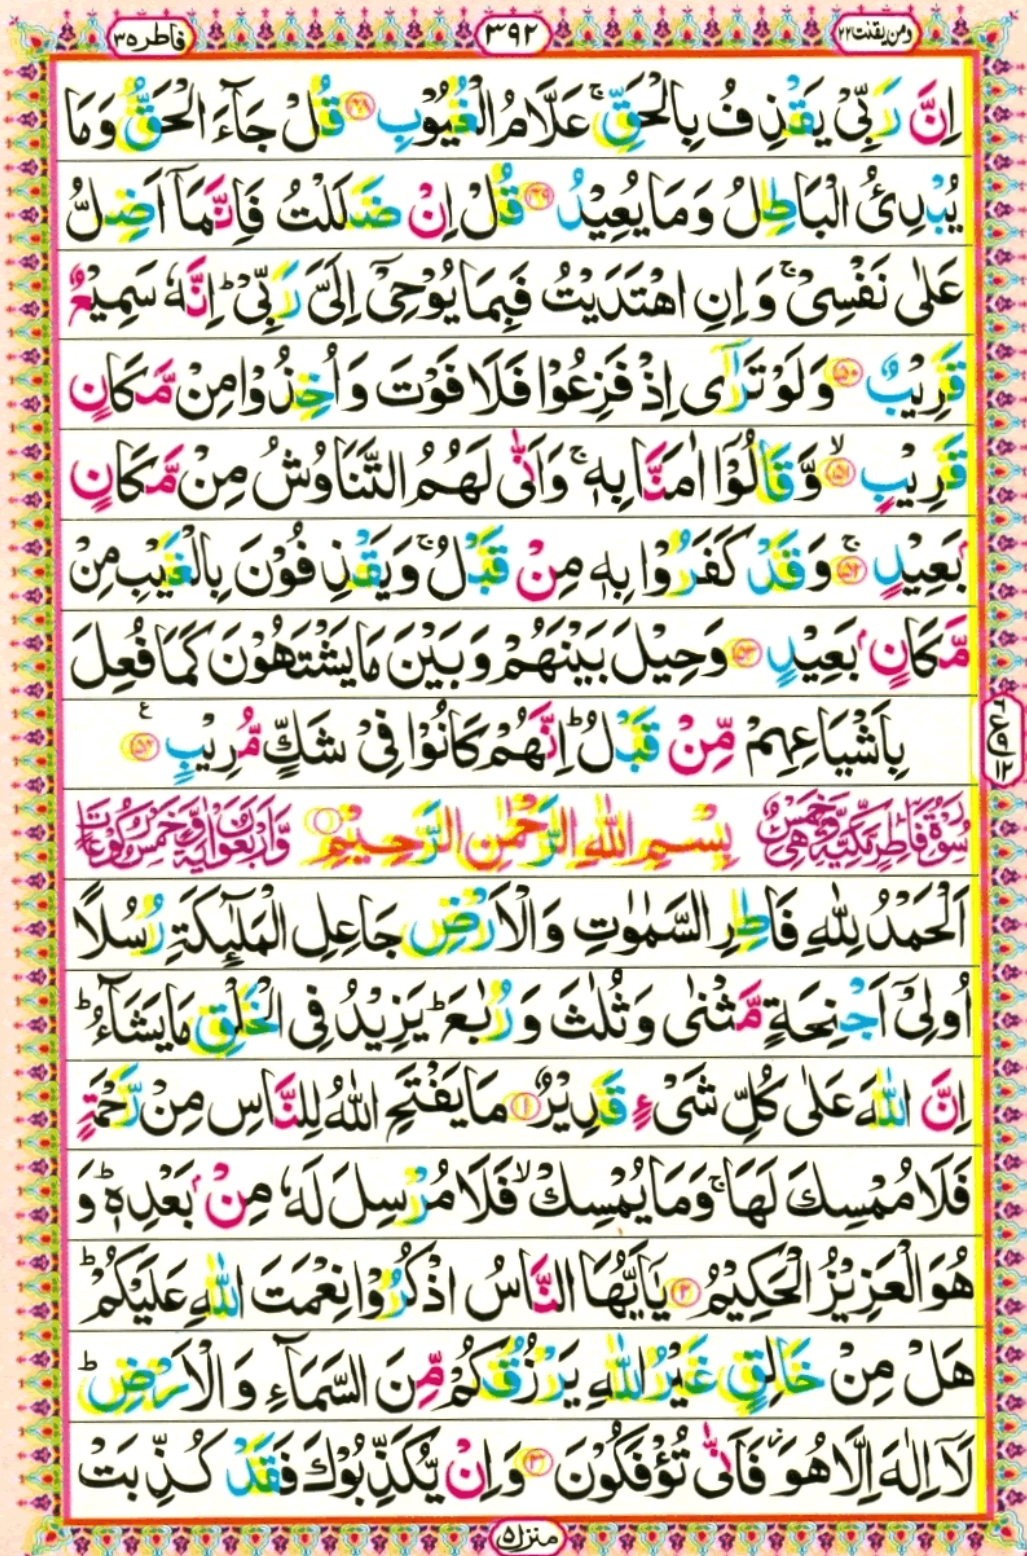 ومن یقنت ٢٢ ٣٩٢ فاطر ٣٥
اِنَّ رَبِّیْ یَقْذِفُ بِالْحَقِّ ۚ عَلَّامُ الْغُیُوْبِ ﴿۴۸﴾ قُلْ جَآءَ الْحَقُّ وَمَا
یُبْدِئُ الْبَاطِلُ وَمَا یُعِیْدُ ﴿۴۹﴾ قُلْ اِنْ ضَلَلْتُ فَاِنَّمَاۤ اَضِلُّ
عَلٰی نَفْسِیْ ۚ وَاِنِ اهْتَدَیْتُ فَبِمَا یُوْحِیْۤ اِلَیَّ رَبِّیْ ؕ اِنَّهٗ سَمِیْعٌ
قَرِیْبٌ ﴿۵۰﴾ وَلَوْ تَرٰۤی اِذْ فَزِعُوْا فَلَا فَوْتَ وَاُخِذُوْا مِنْ مَّكَانٍ
قَرِیْبٍ ﴿۵۱﴾ۙ وَّقَالُوْۤا اٰمَنَّا بِهٖ ۚ وَاَنّٰی لَهُمُ التَّنَاوُشُ مِنْ مَّكَانٍۭ
بَعِیْدٍ ﴿۵۲﴾ۚ وَقَدْ كَفَرُوْا بِهٖ مِنْ قَبْلُ ۚ وَیَقْذِفُوْنَ بِالْغَیْبِ مِنْ
مَّكَانٍۭ بَعِیْدٍ ﴿۵۳﴾ وَحِیْلَ بَیْنَهُمْ وَبَیْنَ مَا یَشْتَهُوْنَ كَمَا فُعِلَ
بِاَشْیَاعِهِمْ مِّنْ قَبْلُ ؕ اِنَّهُمْ كَانُوْا فِیْ شَكٍّ مُّرِیْبٍ ﴿۵۴﴾ ع
٦ ع ٩ ١٢
سُوْرَةُ فَاطِرٍ مَكِّیَّةٌ وَّهِیَ خَمْسٌ بِسْمِ اللّٰهِ الرَّحْمٰنِ الرَّحِیْمِ وَّاَرْبَعُوْنَ اٰیَةً وَّخَمْسُ رُكُوْعَاتٍ
اَلْحَمْدُ لِلّٰهِ فَاطِرِ السَّمٰوٰتِ وَالْاَرْضِ جَاعِلِ الْمَلٰٓئِكَةِ رُسُلًا
اُولِیْۤ اَجْنِحَةٍ مَّثْنٰی وَثُلٰثَ وَرُبٰعَ ؕ یَزِیْدُ فِی الْخَلْقِ مَا یَشَآءُ ؕ
اِنَّ اللّٰهَ عَلٰی كُلِّ شَیْءٍ قَدِیْرٌ ﴿۱﴾ مَا یَفْتَحِ اللّٰهُ لِلنَّاسِ مِنْ رَّحْمَةٍ
فَلَا مُمْسِكَ لَهَا ۚ وَمَا یُمْسِكْ ۙ فَلَا مُرْسِلَ لَهٗ مِنْۢ بَعْدِهٖ ؕ وَ
هُوَ الْعَزِیْزُ الْحَكِیْمُ ﴿۲﴾ یٰۤاَیُّهَا النَّاسُ اذْكُرُوْا نِعْمَتَ اللّٰهِ عَلَیْكُمْ ؕ
هَلْ مِنْ خَالِقٍ غَیْرُ اللّٰهِ یَرْزُقُكُمْ مِّنَ السَّمَآءِ وَالْاَرْضِ ؕ
لَاۤ اِلٰهَ اِلَّا هُوَ ۖ فَاَنّٰی تُؤْفَكُوْنَ ﴿۳﴾ وَاِنْ یُّكَذِّبُوْكَ فَقَدْ كُذِّبَتْ
منزل ٥